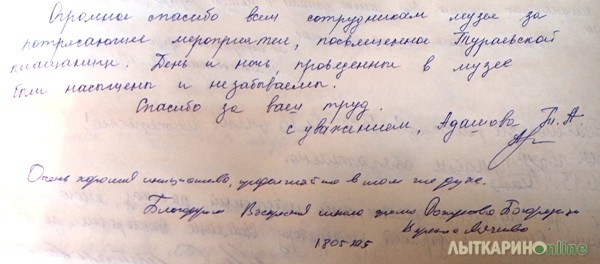 Огромное спасибо всем сотрудникам музея за
потрясающее мероприятие, посвященное Тураевской
плащанице. День и ночь, проведенные в музее
были насыщены и незабываемы.
Спасибо за ваш труд.
с уважением, Адамова Т.А
Очень хорошая инициатива, продолжайте в том же духе.
Благодарим
ЛЫТКАРИНОonline